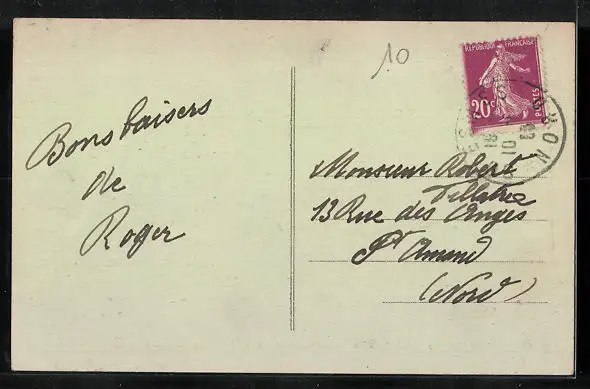 10
REPUBLIQUE FRANÇAISE
20c
POSTES
Bons baisers
de
Roger
Monsieur Robert
13 Rue des Anges
St Amand
(Nord)